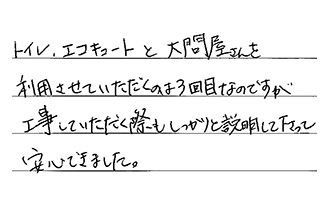 トイレ、エコキュートと大問屋さんを
利用させていただくのは3回目なのですが
工事していただく際もしっかりと説明して下さって
安心できました。